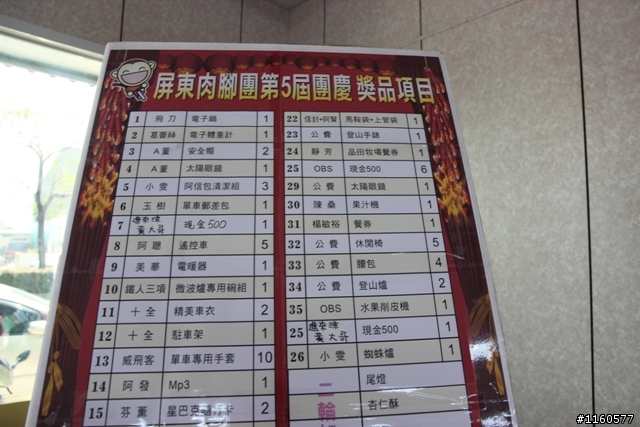 屏東肉腳團第5屆團慶 獎品項目
1 飛刀 電子鍋 1
2 葛蕾絲 電子體重計 1
3 A董 安全帽 2
4 A董 太陽眼鏡 1
5 小雯 阿信包清潔組 3
6 玉樹 單車郵差包 1
7 黃大哥 現金500 1
8 阿聰 遙控車 5
9 美華 電暖器 1
10 鐵人三項 微波爐專用碗組 1
11 十全 精美車衣 2
12 十全 駐車架 1
13 威飛客 單車專用手套 10
14 阿發 Mp3 1
15 芬董 星巴克隨行卡 2
22 信封+阿賢 馬鞍袋+上管袋 1
23 公費 登山手錶 1
24 靜芳 品田牧場餐券 1
25 OBS 現金500 6
29 公費 太陽眼鏡 1
30 陳桑 果汁機 1
31 楊敏裕 餐券 1
32 公費 休閒椅 5
33 公費 腰包 4
34 公費 登山爐 2
35 OBS 水果削皮機 1
25 黃大哥 現金500 1
26 小雯 蜘蛛爐 1
尾燈
杏仁酥
二輪
#1160577